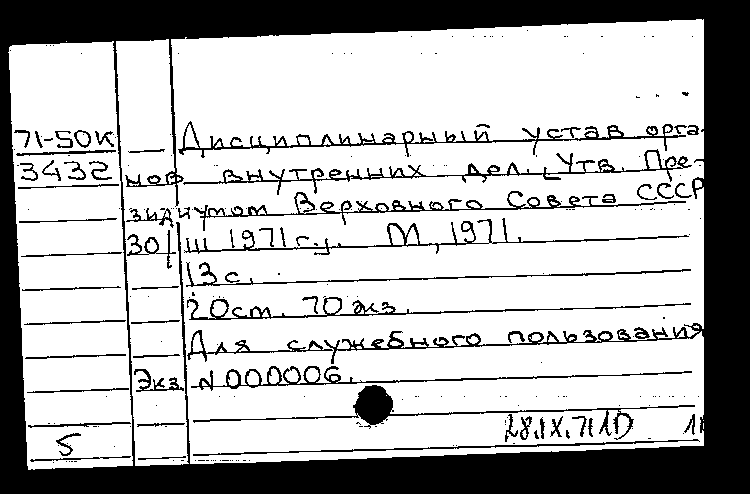 71-50К Дисциплинарный устав орга-
3432 нов внутренних дел. Утв. Пре-
зидиумом Верховного Совета СССР
30/III 1971 г. М, 1971.
13 с.
20 см. 70 экз.
Для служебного пользования
Экз. N 000006.
5 28.IX.71